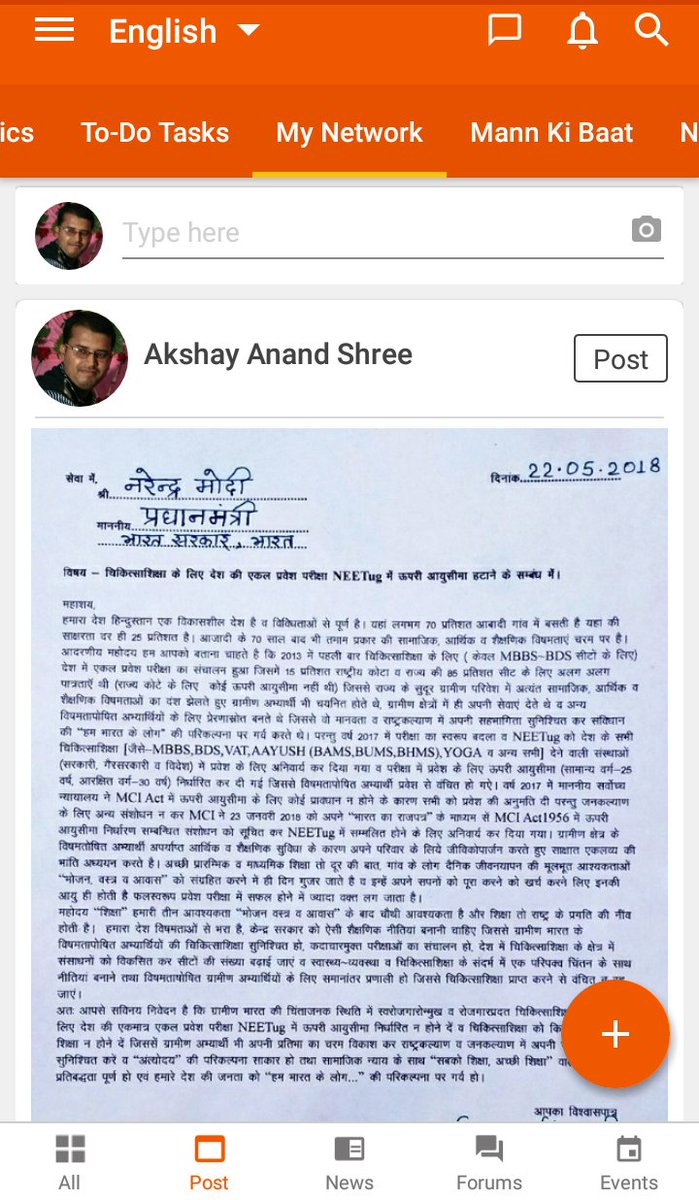 English
ics To-Do Tasks My Network Mann Ki Baat N
Type here
Akshay Anand Shree
Post
सेवा में,
श्री नरेन्द्र मोदी
दिनांक 22.05.2018
माननीय प्रधानमंत्री
भारत सरकार, भारत
विषय – चिकित्साशिक्षा के लिए देश की एकल प्रवेश परीक्षा NEETug में ऊपरी आयुसीमा हटाने के सम्बंध में।
महाशय,
हमारा देश हिन्दुस्तान एक विकासशील देश है व विविधताओं से पूर्ण है। यहां लगभग 70 प्रतिशत आबादी गांव में बसती है यहा की
साक्षरता दर ही 25 प्रतिशत है। आजादी के 70 साल बाद भी तमाम प्रकार की सामाजिक, आर्थिक व शैक्षणिक विषमताएं चरम पर है।
आदरणीय महोदय हम आपको बताना चाहते है कि 2013 में पहली बार चिकित्साशिक्षा के लिए ( केवल MBBS~BDS सीटों के लिए)
देश में एकल प्रवेश परीक्षा का संचालन हुआ जिसमें 15 प्रतिशत राष्ट्रीय कोटा व राज्य की 85 प्रतिशत सीट के लिए अलग अलग
पात्रताएं थी (राज्य कोटे के लिए कोई ऊपरी आयुसीमा नहीं थी) जिससे राज्य के सुदूर ग्रामीण परिवेश में अत्यंत सामाजिक, आर्थिक व
शैक्षणिक विषमताओं का दंश झेलते हुए ग्रामीण अभ्यार्थी भी चयनित होते थे, ग्रामीण क्षेत्रों में ही अपनी सेवाएं देते थे व अन्य
विषमतापोषित अभ्यार्थियों के लिए प्रेरणास्रोत बनते थे जिससे वो मानवता व राष्ट्रकल्याण में अपनी सहभागिता सुनिश्चित कर संविधान
की "हम भारत के लोग" की परिकल्पना पर गर्व करते थे। परन्तु वर्ष 2017 में परीक्षा का स्वरूप बदला व NEETug को देश के सभी
चिकित्साशिक्षा [जैसे~MBBS,BDS,VAT,AAYUSH (BAMS,BUMS,BHMS),YOGA व अन्य सभी] देने वाली संस्थाओं
(सरकारी, गैरसरकारी व विदेश) में प्रवेश के लिए अनिवार्य कर दिया गया व परीक्षा में प्रवेश के लिए ऊपरी आयुसीमा (सामान्य वर्ग-25
वर्ष, आरक्षित वर्ग-30 वर्ष) निर्धारित कर दी गई जिससे विषमतापोषित अभ्यार्थी प्रवेश से वंचित हो गए। वर्ष 2017 में माननीय सर्वोच्च
न्यायालय ने MCI Act में ऊपरी आयुसीमा के लिए कोई प्रावधान न होने के कारण सभी को प्रवेश की अनुमति दी परन्तु जनकल्याण
के लिए अन्य संशोधन न कर MCI ने 23 जनवरी 2018 को अपने "भारत का राजपत्र" के माध्यम से MCI Act1956 में ऊपरी
आयुसीमा निर्धारण सम्बन्धित संशोधन को सूचित कर NEETug में सम्मलित होने के लिए अनिवार्य कर दिया गया। ग्रामीण क्षेत्र के
विषमतोषित अभ्यार्थी अपर्याप्त आर्थिक व शैक्षणिक सुविधा के कारण अपने परिवार के लिये जीविकोपार्जन करते हुए साक्षात एकलव्य की
भांति अध्ययन करते है। अच्छी प्रारम्भिक व माध्यमिक शिक्षा तो दूर की बात, गांव के लोग दैनिक जीवनयापन की मूलभूत आश्यकताओं
"भोजन, वस्त्र व आवास" को संग्रहित करने में ही दिन गुजर जाते है व इन्हें अपने सपनों को पूरा करने को खर्च करने लिए इनकी
आयु ही होती है फलस्वरूप प्रवेश परीक्षा में सफल होने में ज्यादा वक्त लग जाता है।
महोदय "शिक्षा" हमारी तीन आवश्यकता "भोजन वस्त्र व आवास" के बाद चौथी आवश्यकता है और शिक्षा तो राष्ट्र के प्रगति की नींव
होती है। हमारा देश विषमताओं से भरा है, केन्द्र सरकार को ऐसी शैक्षणिक नीतिया बनानी चाहिए जिससे ग्रामीण भारत के
विषमतापोषित अभ्यार्थियों की चिकित्साशिक्षा सुनिश्चित हो, कदाचारमुक्त परीक्षाओं का संचालन हो, देश में चिकित्साशिक्षा के क्षेत्र में
संसाधनों को विकसित कर सीटों की संख्या बढ़ाई जाएं व स्वास्थ्य~व्यवस्था व चिकित्साशिक्षा के संदर्भ में एक परिपक्व चिंतन के साथ
नीतियां बनाने तथा विषमतापोषित ग्रामीण अभ्यार्थियों के लिए समानांतर प्रणाली हो जिससे चिकित्साशिक्षा प्राप्त करने से वंचित न रह
जाएं।
अतः आपसे सविनय निवेदन है कि ग्रामीण भारत की चिंताजनक स्थिति में स्वरोजगारोन्मुख व रोजगारप्रदत
लिए देश की एकमात्र एकल प्रवेश परीक्षा NEETug में ऊपरी आयुसीमा निर्धारित न होने दें व चिकित्साशिक्षा को
शिक्षा न होने दें जिससे ग्रामीण अभ्यार्थी भी अपनी प्रतिभा का चरम विकास कर राष्ट्रकल्याण व जनकल्याण में अपनी
सुनिश्चित करे व "अंत्योदय" की परिकल्पना साकार हो तथा सामाजिक न्याय के साथ "सबको शिक्षा, अच्छी शिक्षा"
प्रतिबद्धता पूर्ण हो एवं हमारे देश की जनता को "हम भारत के लोग..." की परिकल्पना पर गर्व हो।
आपका विश्वासपात्र
All Post News Forums Events